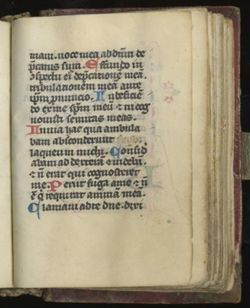 mam. voce mea ad dnm de
p̄catus sum. Effundo in
ɔspectu ei' dep̄catione mea.
tribulationem mea ante
ip̄m p̄nuncio. In deficie
do ex me sp̄m meu & tu cog
novisti semitas meas.
In via hac qua ambula
bam absconderunt
laqueum michi. Consid
abam ad dexteru & videba
& n̄ erat qui cognosceret
me. Perut fuga a me & n̄
ē q̄ requirat anima mea.
Clamavi ad te dne dixi